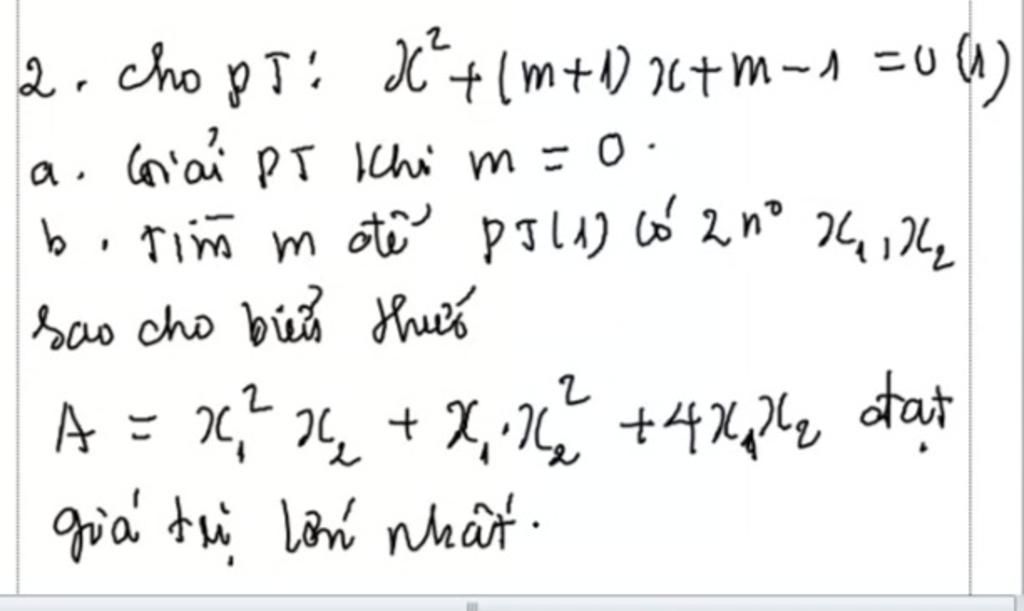 2. cho pT: x² + (m+1)x + m - 1 = 0 (1)
a. Giải PT Khi m = 0.
b. Tìm m để PT(1) có 2 n° x₁, x₂
sao cho biểu thức
A = x₁² x₂ + x₁.x₂² + 4x₁x₂ đạt
giá trị lớn nhất.